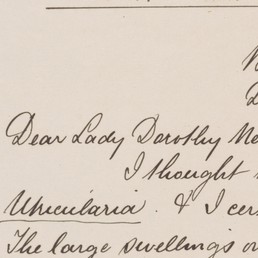 Dear Lady Dorothy Ne
I thought
Utricularia. & I cer
The large swellings on